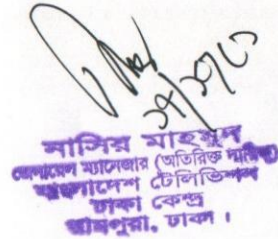 নাসির মাহমুদ
জেনারেল ম্যানেজার (অতিরিক্ত দায়িত্ব)
বাংলাদেশ টেলিভিশন
ঢাকা কেন্দ্র
রামপুরা, ঢাকা ।